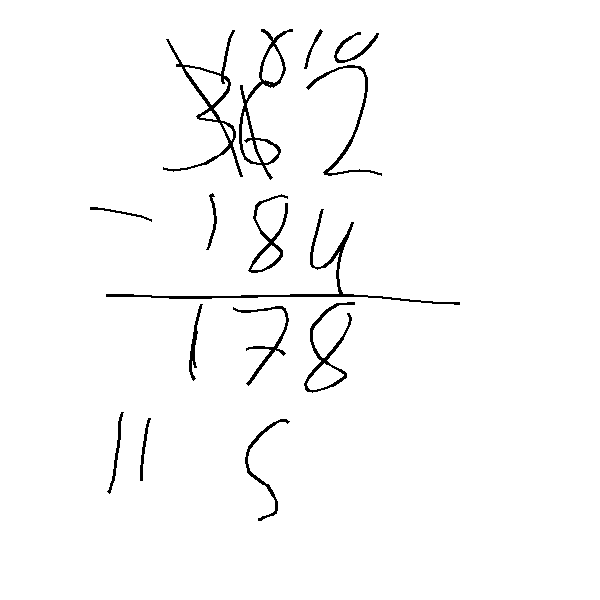 1 8 10
362
- 184
178
11 5